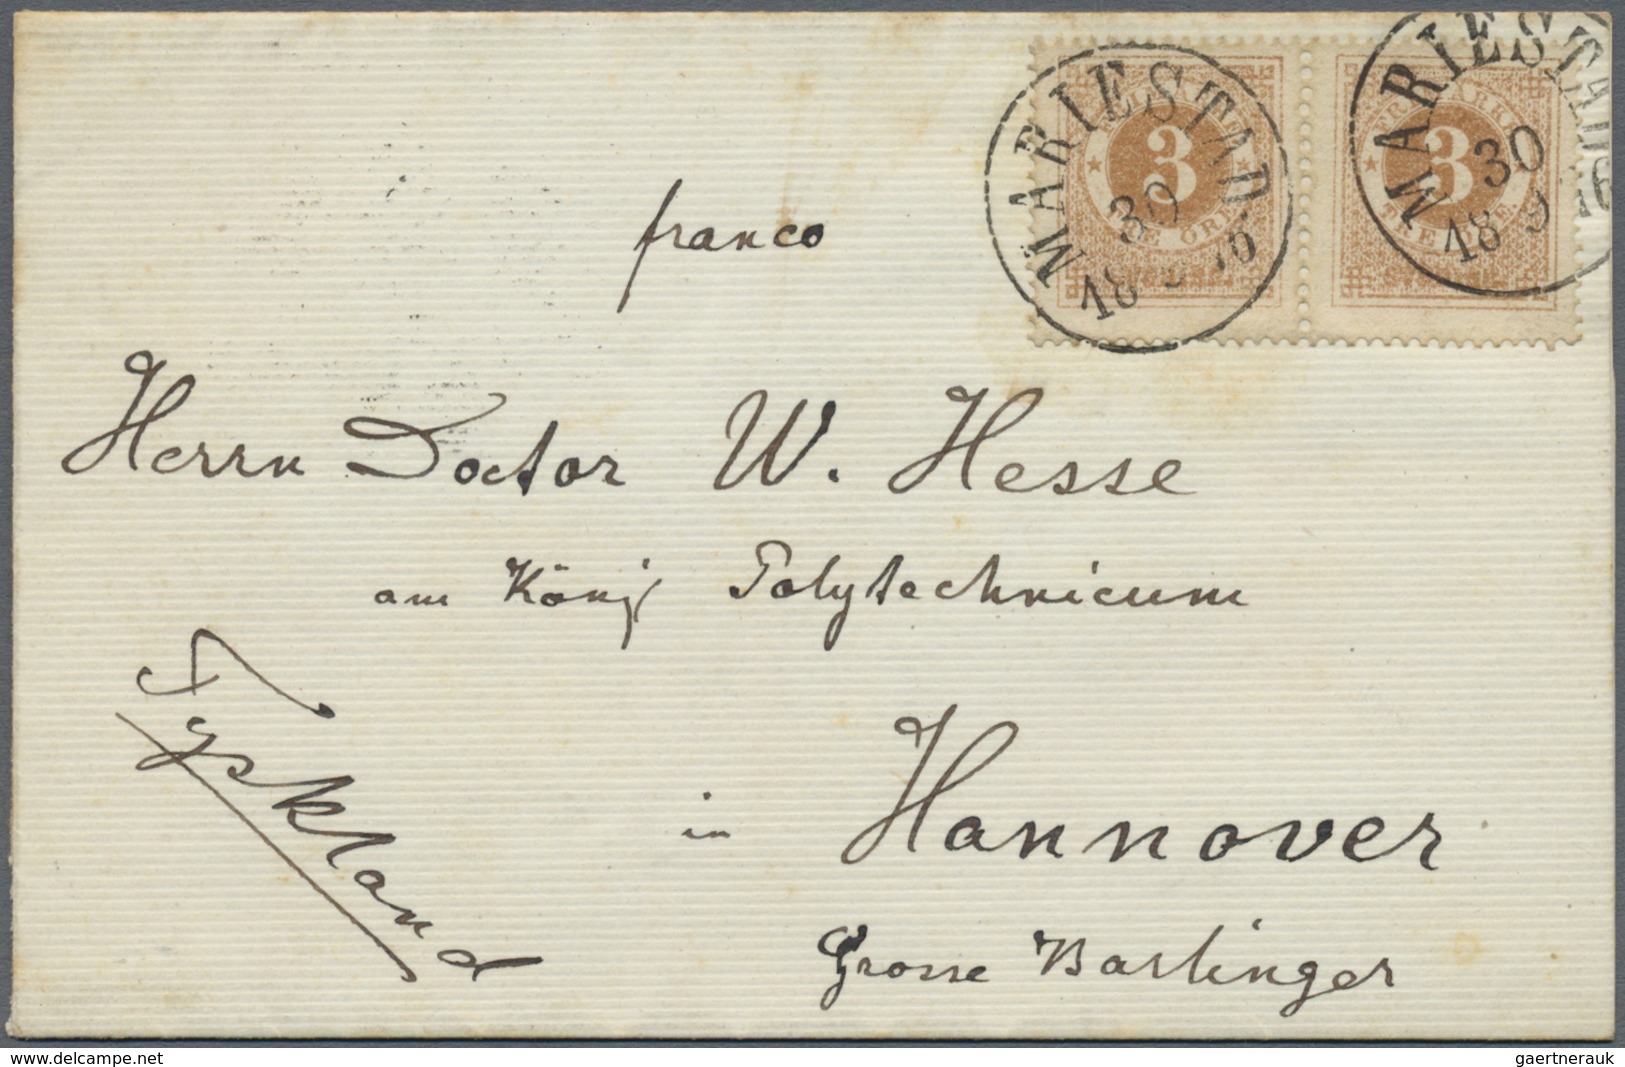 MARIESTAD
30
18 9 76
3
TRE ÖRE
MARIESTAD
30
18 9 76
3
TRE
franco
Herrn Doctor W. Hesse
am König Polytechnicum
in Hannover
Grosse Barlinger
Tyskland
www.delcampe.net
gaertnerauk